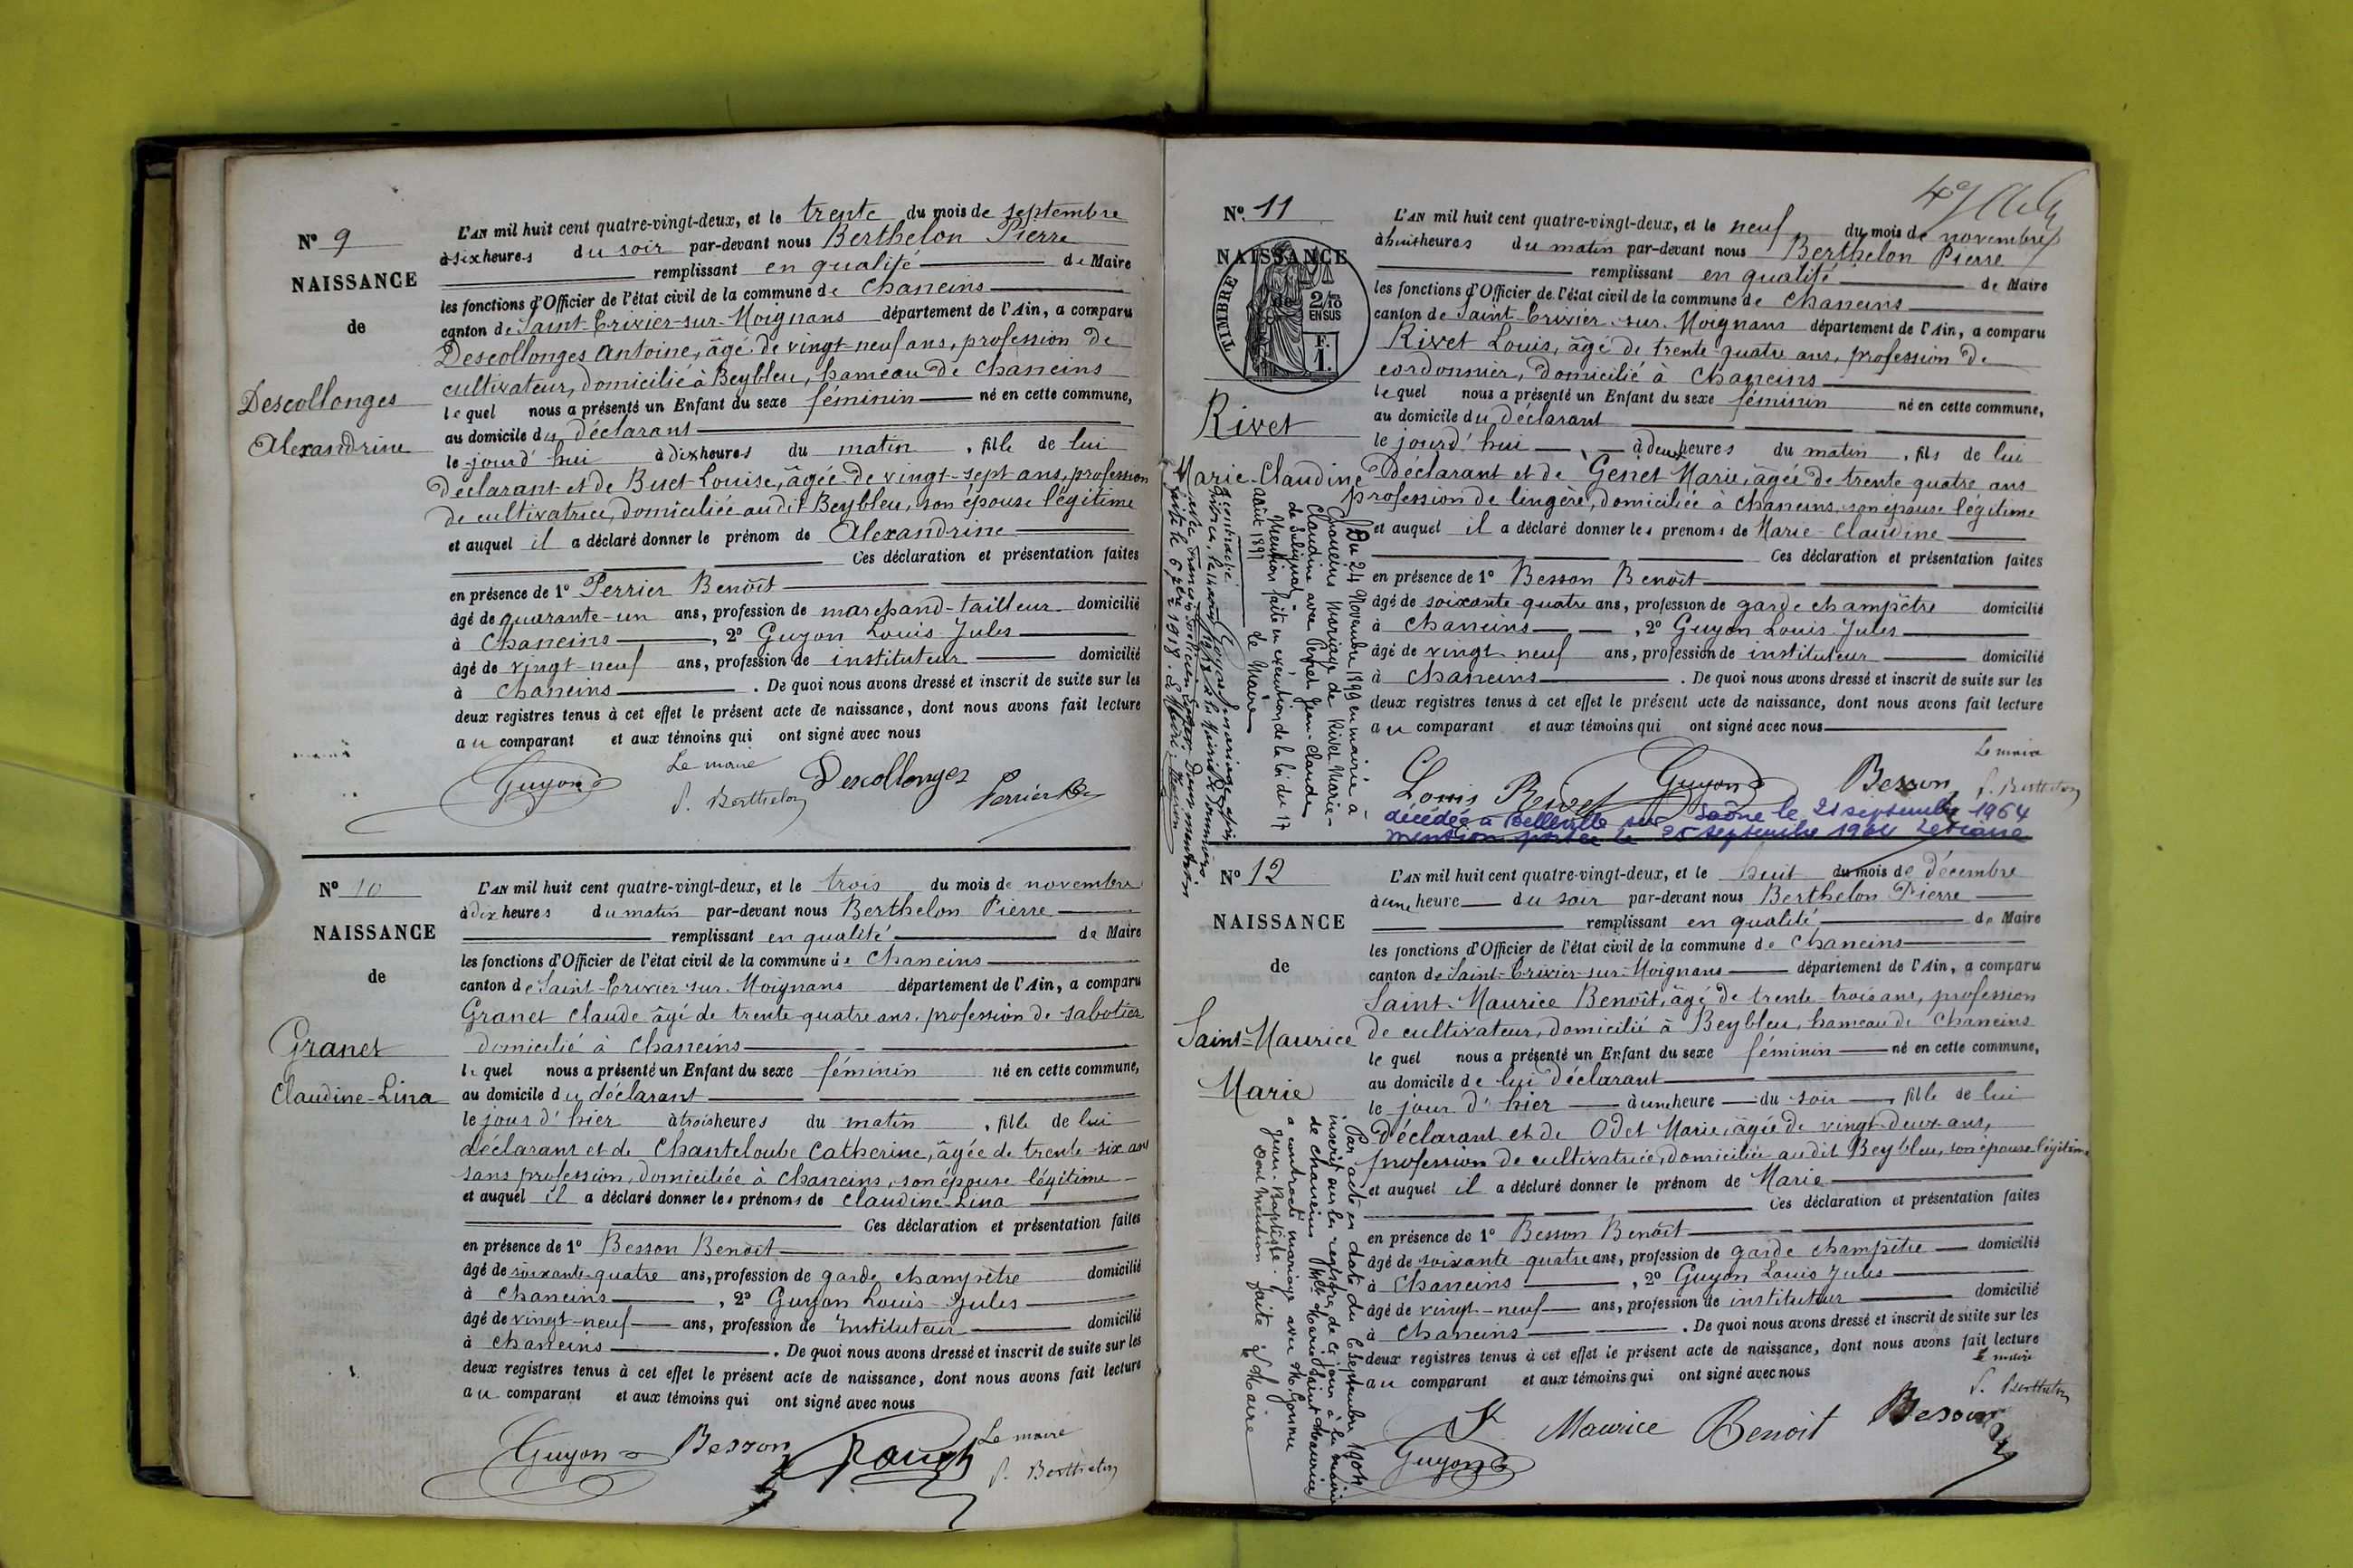 Nº 9
NAISSANCE
de
Descollonges
Alexandrine
L'AN mil huit cent quatre-vingt-deux, et le trente du mois de septembre
à six heures du soir par-devant nous Berthelon Pierre
remplissant en qualité de Maire
les fonctions d'Officier de l'état civil de la commune de Chaneins
canton de Saint-Trivier-sur-Moignans département de l'Ain, a comparu
Descollonges Antoine, âgé de vingt-neuf ans, profession de
cultivateur, domicilié à Beybleu, hameau de Chaneins
lequel nous a présenté un Enfant du sexe féminin né en cette commune,
au domicile du déclarant
le jourd'hui à dix heures du matin, fille de lui
déclarant et de Buet Louise, âgée de vingt-sept ans, profession
de cultivatrice, domiciliée au dit Beybleu, son épouse légitime
et auquel il a déclaré donner le prénom de Alexandrine
Ces déclaration et présentation faites
en présence de 1º Perrier Benoît
âgé de quarante-un ans, profession de marchand-tailleur domicilié
à Chaneins, 2º Guyon Louis Jules
âgé de vingt-neuf ans, profession de instituteur domicilié
à Chaneins. De quoi nous avons dressé et inscrit de suite sur les
deux registres tenus à cet effet le présent acte de naissance, dont nous avons fait lecture
au comparant et aux témoins qui ont signé avec nous
Le maire
Guyon P. Berthelon Descollonges Perrier
Nº 10
NAISSANCE
de
Granet
Claudine-Lina
L'AN mil huit cent quatre-vingt-deux, et le trois du mois de novembre
à dix heures du matin par-devant nous Berthelon Pierre
remplissant en qualité de Maire
les fonctions d'Officier de l'état civil de la commune de Chaneins
canton de Saint-Trivier-sur-Moignans département de l'Ain, a comparu
Granet Claude âgé de trente-quatre ans, profession de sabotier
domicilié à Chaneins
lequel nous a présenté un Enfant du sexe féminin né en cette commune,
au domicile du déclarant
le jour d'hier à trois heures du matin, fille de lui
déclarant et de Chanteloube Catherine, âgée de trente-six ans
sans profession, domiciliée à Chaneins, son épouse légitime
et auquel il a déclaré donner les prénoms de Claudine-Lina
Ces déclaration et présentation faites
en présence de 1º Besson Benoît
âgé de soixante-quatre ans, profession de garde champêtre domicilié
à Chaneins, 2º Guyon Louis-Jules
âgé de vingt-neuf ans, profession de instituteur domicilié
à Chaneins. De quoi nous avons dressé et inscrit de suite sur les
deux registres tenus à cet effet le présent acte de naissance, dont nous avons fait lecture
au comparant et aux témoins qui ont signé avec nous
Le maire
Guyon Besson P. Berthelon
Nº 11
NAISSANCE
TIMBRE
2/10
EN SUS
F.
1.
Rivet
Marie-Claudine
L'AN mil huit cent quatre-vingt-deux, et le neuf du mois de novembre
à huit heures du matin par-devant nous Berthelon Pierre
remplissant en qualité de Maire
les fonctions d'Officier de l'état civil de la commune de Chaneins
canton de Saint-Trivier-sur-Moignans département de l'Ain, a comparu
Rivet Louis, âgé de trente-quatre ans, profession de
cordonnier, domicilié à Chaneins
lequel nous a présenté un Enfant du sexe féminin né en cette commune,
au domicile du déclarant
le jourd'hui à deux heures du matin, fils de lui
déclarant et de Genet Marie, âgée de trente quatre ans
profession de lingère, domiciliée à Chaneins, son épouse légitime
et auquel il a déclaré donner les prénoms de Marie-Claudine
Ces déclaration et présentation faites
en présence de 1º Besson Benoît
âgé de soixante-quatre ans, profession de garde champêtre domicilié
à Chaneins, 2º Guyon Louis Jules
âgé de vingt-neuf ans, profession de instituteur domicilié
à Chaneins. De quoi nous avons dressé et inscrit de suite sur les
deux registres tenus à cet effet le présent acte de naissance, dont nous avons fait lecture
au comparant et aux témoins qui ont signé avec nous
Le maire
Louis Rivet Guyon Besson P. Berthelon
décédée à Belleville sur Saône le 21 septembre 1964
mention portée le 25 septembre 1964
Du 24 Novembre 1899 en mairie à
Mariage de Rivet Marie-
Claudine avec Jean-Claude
Mention faite en exécution de la loi du 17
août 1897
Le Maire
Nº 12
NAISSANCE
de
Saint-Maurice
Marie
L'AN mil huit cent quatre-vingt-deux, et le huit du mois de décembre
à une heure du soir par-devant nous Berthelon Pierre
remplissant en qualité de Maire
les fonctions d'Officier de l'état civil de la commune de Chaneins
canton de Saint-Trivier-sur-Moignans département de l'Ain, a comparu
Saint-Maurice Benoît, âgé de trente-trois ans, profession
de cultivateur, domicilié à Beybleu, hameau de Chaneins
lequel nous a présenté un Enfant du sexe féminin né en cette commune,
au domicile de lui déclarant
le jour d'hier à une heure du soir, fille de lui
déclarant et de Odet Marie, âgée de vingt-deux ans,
profession de cultivatrice, domiciliée au dit Beybleu, son épouse légitime
et auquel il a déclaré donner le prénom de Marie
Ces déclaration et présentation faites
en présence de 1º Besson Benoît
âgé de soixante-quatre ans, profession de garde champêtre domicilié
à Chaneins, 2º Guyon Louis Jules
âgé de vingt-neuf ans, profession de instituteur domicilié
à Chaneins. De quoi nous avons dressé et inscrit de suite sur les
deux registres tenus à cet effet le présent acte de naissance, dont nous avons fait lecture
au comparant et aux témoins qui ont signé avec nous
Le maire
P. Berthelon
St Maurice Benoit Besson
Guyon
Par acte en date du 6 septembre 1904
inscrit sur les registres de ce jour à la mairie
de Chaneins Melle Marie Saint Maurice
a contracté mariage avec M. Gonnu
Jean-Baptiste
Dont mention faite
Le Maire